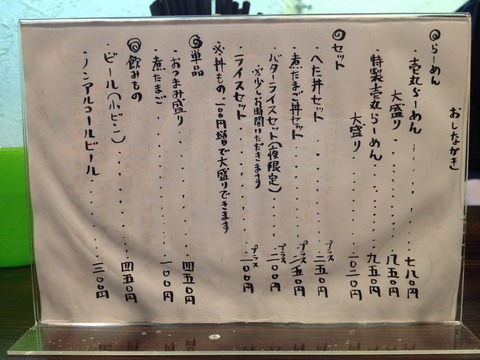 おしながき
◎らーめん
・壱丸らーめん 七八〇円
大盛り 八五〇円
・特製壱丸らーめん 九五〇円
大盛り 一〇二〇円
◎セット
・へた丼セット プラス 二五〇円
・煮たまご丼セット プラス 二五〇円
・バターライスセット(夜限定) プラス 二〇〇円
※少しお時間いただきます
・ライスセット プラス 一〇〇円
※丼もの一〇〇円増で大盛りできます
◎単品
・おつまみ盛り 四五〇円
・煮たまご 一〇〇円
◎飲みもの
・ビール(小ビン) 四五〇円
・ノンアルコールビール 三〇〇円